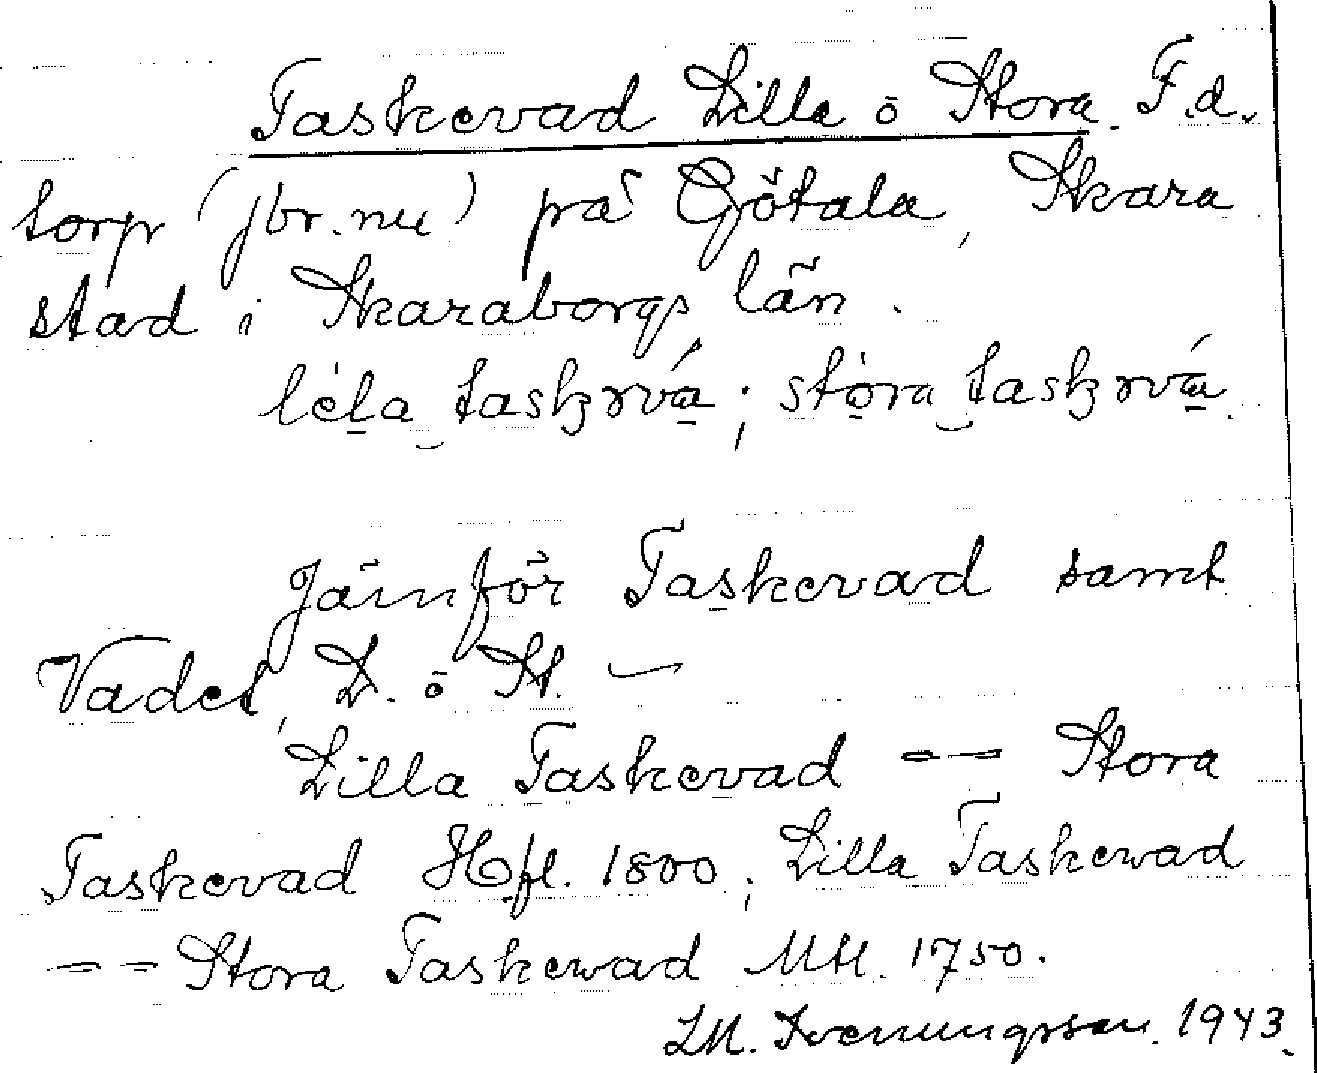 Taskevad Lilla o Stora. F.d.
torp (jbr. nu) på Götala, Skara
stad i Skaraborgs län.
lela taskrvá; stora taskrvá.
Jämför Taskevad samt
Vadet, L. o St. —
Lilla Taskevad -- Stora
Taskevad Hfl. 1800; Lilla Taskewad
-- Stora Taskewad MH. 1750.
1943.